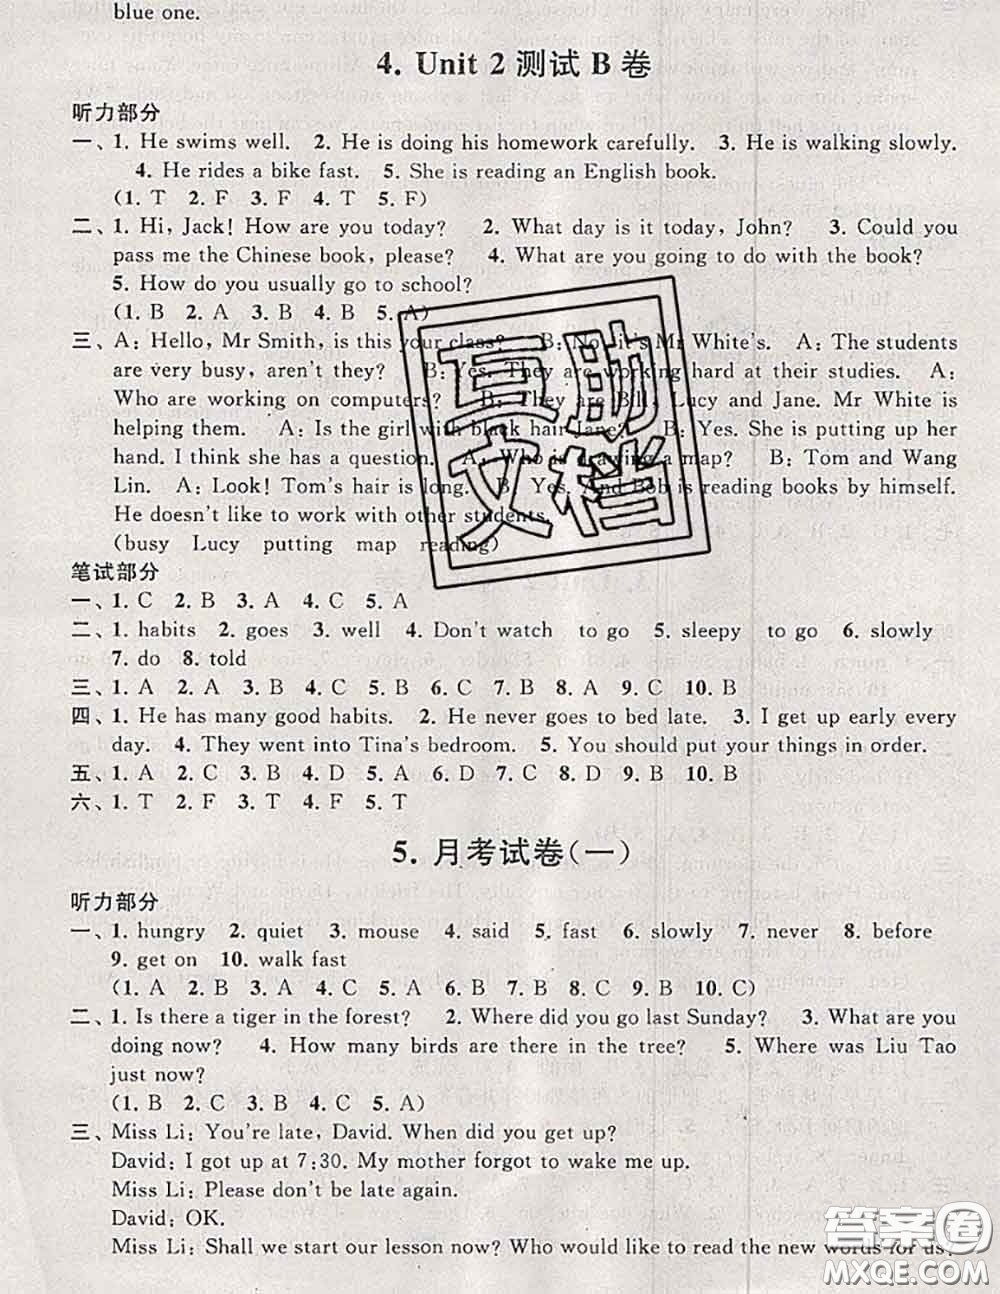 blue one.
4. Unit 2 测试 B 卷
听力部分
一、1. He swims well. 2. He is doing his homework carefully. 3. He is walking slowly.
4. He rides a bike fast. 5. She is reading an English book.
(1. T 2. F 3. F 4. T 5. F)
二、1. Hi, Jack! How are you today? 2. What day is it today, John? 3. Could you
pass me the Chinese book, please? 4. What are you going to do with the book?
5. How do you usually go to school?
(1. B 2. A 3. B 4. B 5. A)
三、A: Hello, Mr Smith, is this your class? B: No, it's Mr White's. A: The students
are very busy, aren't they? B: Yes. They are working hard at their studies. A:
Who are working on computers? B: They are Bill, Lucy and Jane. Mr White is
helping them. A: Is the girl with black hair Jane? B: Yes. She is putting up her
hand. I think she has a question. A: Who is drawing a map? B: Tom and Wang
Lin. A: Look! Tom's hair is long. B: Yes. And Bob is reading books by himself.
He doesn't like to work with other students.
(busy Lucy putting map reading)
笔试部分
一、1. C 2. B 3. A 4. C 5. A
二、1. habits 2. goes 3. well 4. Don't watch to go 5. sleepy to go 6. slowly
7. do 8. told
三、1. A 2. A 3. B 4. C 5. B 6. C 7. B 8. A 9. C 10. B
四、1. He has many good habits. 2. He never goes to bed late. 3. I get up early every
day. 4. They went into Tina's bedroom. 5. You should put your things in order.
五、1. A 2. C 3. B 4. D 5. A 6. D 7. C 8. D 9. B 10. B
六、1. T 2. F 3. T 4. F 5. T
5. 月考试卷(一)
听力部分
一、1. hungry 2. quiet 3. mouse 4. said 5. fast 6. slowly 7. never 8. before
9. get on 10. walk fast
(1. A 2. B 3. A 4. C 5. A 6. B 7. C 8. B 9. B 10. C)
二、1. Is there a tiger in the forest? 2. Where did you go last Sunday? 3. What are you
doing now? 4. How many birds are there in the tree? 5. Where was Liu Tao
just now?
(1. B 2. C 3. B 4. C 5. A)
三、Miss Li: You're late, David. When did you get up?
David: I got up at 7:30. My mother forgot to wake me up.
Miss Li: Please don't be late again.
David: OK.
Miss Li: Shall we start our lesson now? Who would like to read the new words for us?
互助
文档
答案圈
MXQE.COM